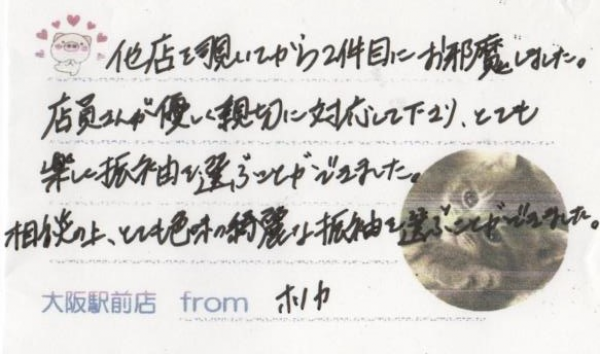 他店を覗いてから2件目にお邪魔しました。
店員さんが優しく親切に対応して下さり、とても
楽しく振袖を選ぶことができました。
相談の上、とても色味の綺麗な振袖を選ぶことができました。
大阪駅前店 from ホノカ